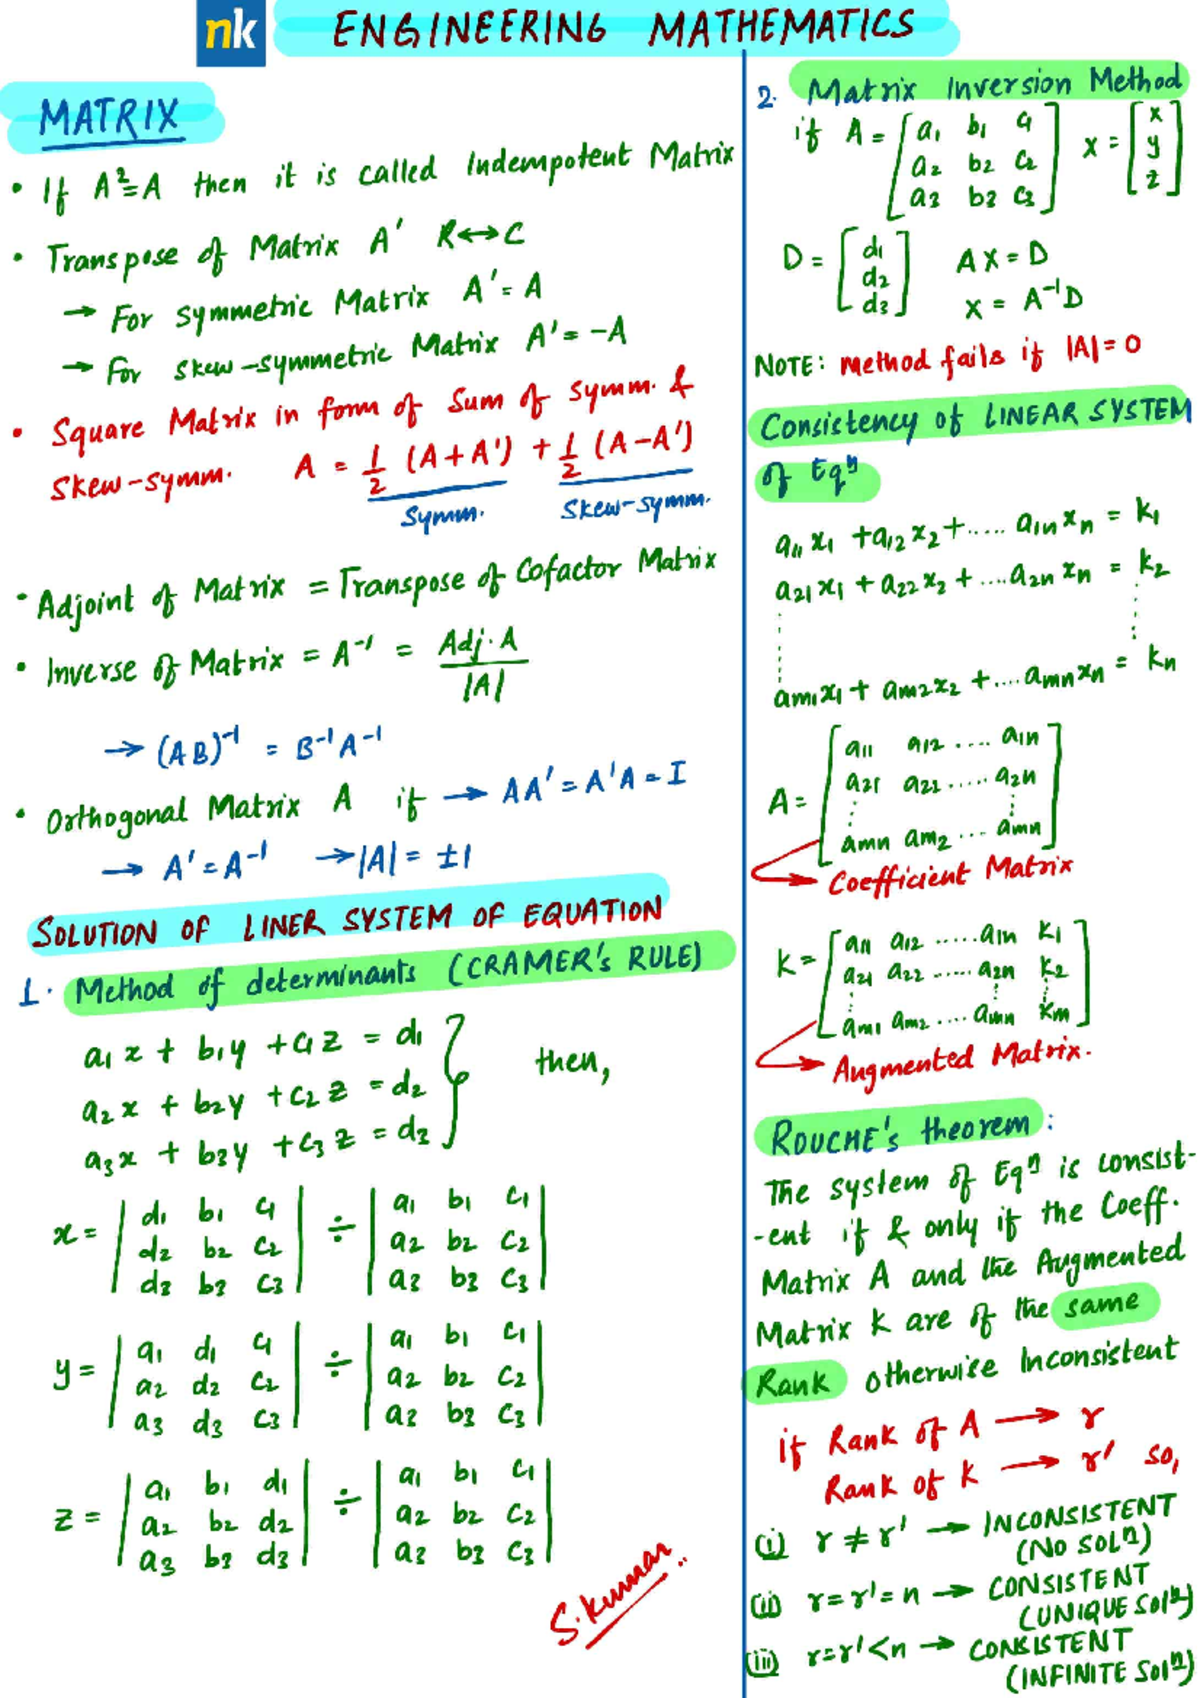 nk
ENGINEERING MATHEMATICS
MATRIX
• If A²=A then it is called Indempotent Matrix
• Transpose of Matrix A' R↔C
→ For symmetric Matrix A' = A
→ For skew-symmetric Matrix A' = -A
• Square Matrix in form of Sum of Symm. &
Skew-symm. A = 1/2 (A+A') + 1/2 (A-A')
Symm. Skew-symm.
• Adjoint of Matrix = Transpose of Cofactor Matrix
• Inverse of Matrix = A⁻¹ = Adj.A / |A|
→ (AB)⁻¹ = B⁻¹A⁻¹
• Orthogonal Matrix A if → AA' = A'A = I
→ A' = A⁻¹ → |A| = ±1
SOLUTION OF LINER SYSTEM OF EQUATION
1. Method of determinants (CRAMER's RULE)
a₁x + b₁y + c₁z = d₁
a₂x + b₂y + c₂z = d₂ } then,
a₃x + b₃y + c₃z = d₃
x = | d₁ b₁ c₁ | ÷ | a₁ b₁ c₁ |
| d₂ b₂ c₂ | | a₂ b₂ c₂ |
| d₃ b₃ c₃ | | a₃ b₃ c₃ |
y = | a₁ d₁ c₁ | ÷ | a₁ b₁ c₁ |
| a₂ d₂ c₂ | | a₂ b₂ c₂ |
| a₃ d₃ c₃ | | a₃ b₃ c₃ |
z = | a₁ b₁ d₁ | ÷ | a₁ b₁ c₁ |
| a₂ b₂ d₂ | | a₂ b₂ c₂ |
| a₃ b₃ d₃ | | a₃ b₃ c₃ |
S.Kumar..
2. Matrix Inversion Method
if A = [ a₁ b₁ c₁ ] X = [ x ]
[ a₂ b₂ c₂ ] [ y ]
[ a₃ b₃ c₃ ] [ z ]
D = [ d₁ ] AX = D
[ d₂ ]
[ d₃ ] x = A⁻¹D
NOTE: method fails if |A| = 0
Consistency of LINEAR SYSTEM
of Eqⁿ
a₁₁x₁ + a₁₂x₂ + ..... a₁ₙxₙ = k₁
a₂₁x₁ + a₂₂x₂ + .... a₂ₙxₙ = k₂
aₘ₁x₁ + aₘ₂x₂ + .... aₘₙxₙ = kₙ
A = [ a₁₁ a₁₂ .... a₁ₙ ]
[ a₂₁ a₂₂ ..... a₂ₙ ]
[ aₘₙ aₘ₂ ... aₘₙ ]
→ Coefficient Matrix
K = [ a₁₁ a₁₂ ..... a₁ₙ k₁ ]
[ a₂₁ a₂₂ ..... a₂ₙ k₂ ]
[ aₘ₁ aₘ₂ .... aₘₙ kₘ ]
→ Augmented Matrix.
ROUCHE's theorem :
The system of Eqⁿ is consist-
-ent if & only if the Coeff.
Matrix A and the Augmented
Matrix K are of the same
Rank otherwise Inconsistent
if Rank of A → r
Rank of K → r' so,
(i) r ≠ r' → INCONSISTENT
(NO SOLⁿ)
(ii) r = r' = n → CONSISTENT
(UNIQUE Solⁿ)
(iii) r = r' < n → CONSISTENT
(INFINITE Solⁿ)